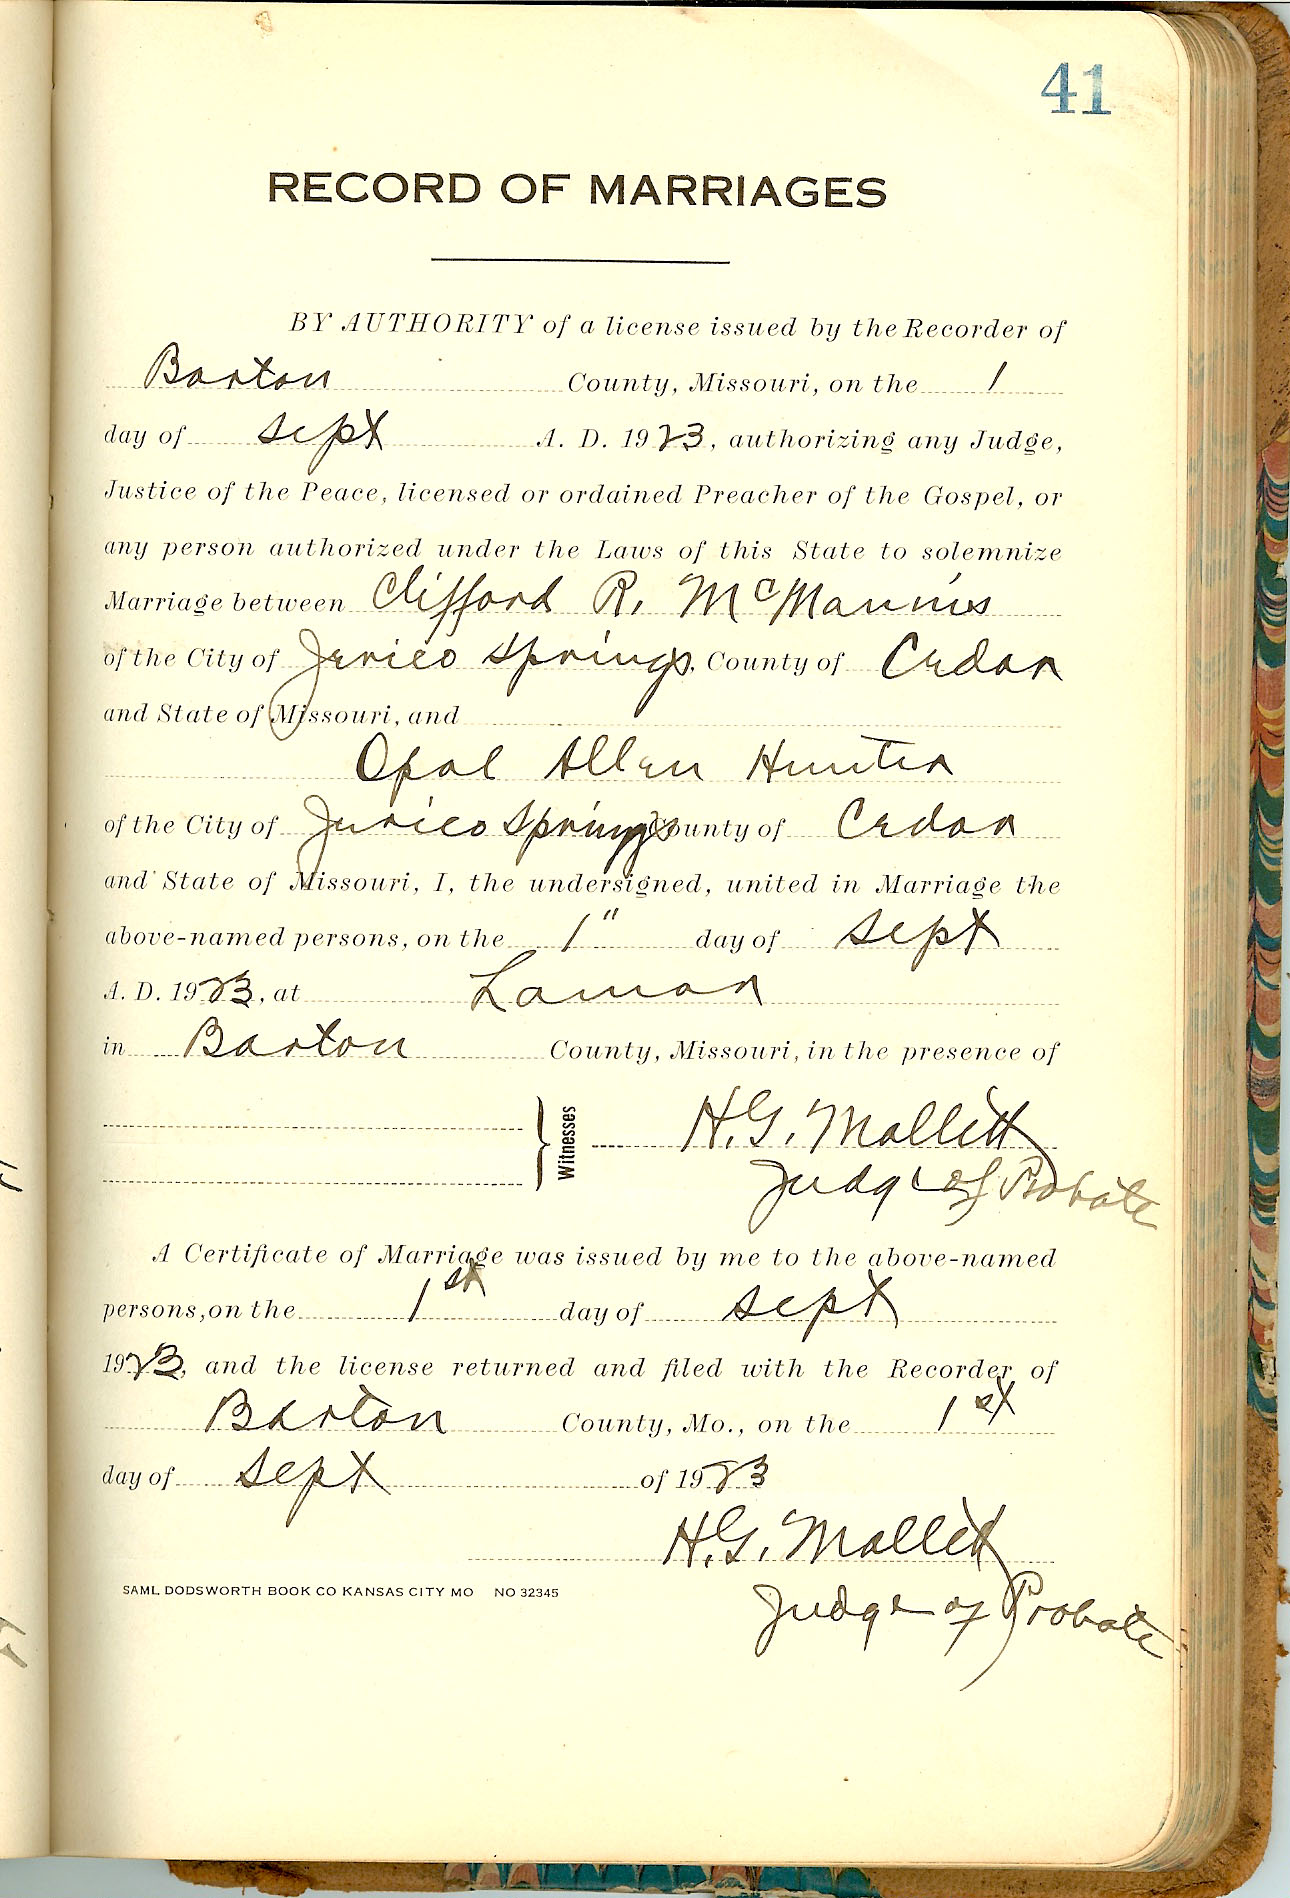 41
RECORD OF MARRIAGES
BY AUTHORITY of a license issued by the Recorder of
Barton County, Missouri, on the 1
day of Sept A. D. 1923, authorizing any Judge,
Justice of the Peace, licensed or ordained Preacher of the Gospel, or
any person authorized under the Laws of this State to solemnize
Marriage between Clifford R. McMannis
of the City of Jerico Springs, County of Cedar
and State of Missouri, and
Opal Allen Hunter
of the City of Jerico Springs County of Cedar
and State of Missouri, I, the undersigned, united in Marriage the
above-named persons, on the 1" day of Sept
A. D. 1923, at Lamar
in Barton County, Missouri, in the presence of
Witnesses H. G. Mallett
Judge of Probate
A Certificate of Marriage was issued by me to the above-named
persons, on the 1st day of Sept
1923, and the license returned and filed with the Recorder of
Barton County, Mo., on the 1st
day of Sept of 1923
H. G. Mallett
SAML DODSWORTH BOOK CO KANSAS CITY MO NO 32345
Judge of Probate